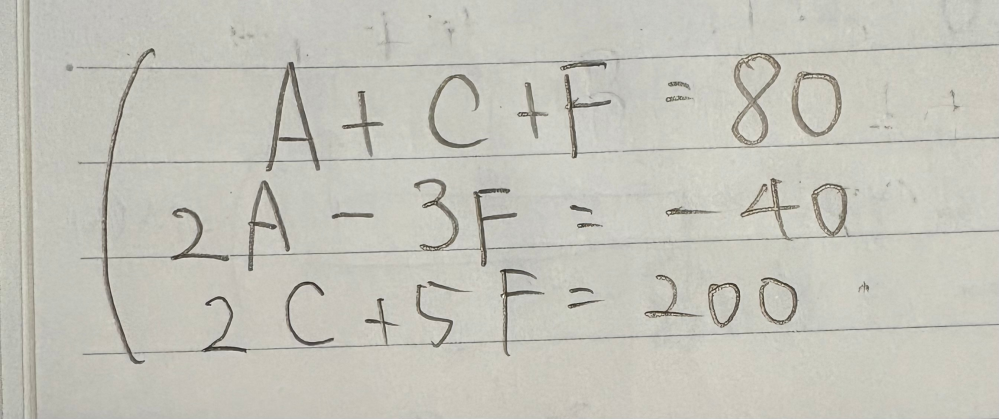 A + C + F = 80
2A - 3F = - 40
2C + 5F = 200